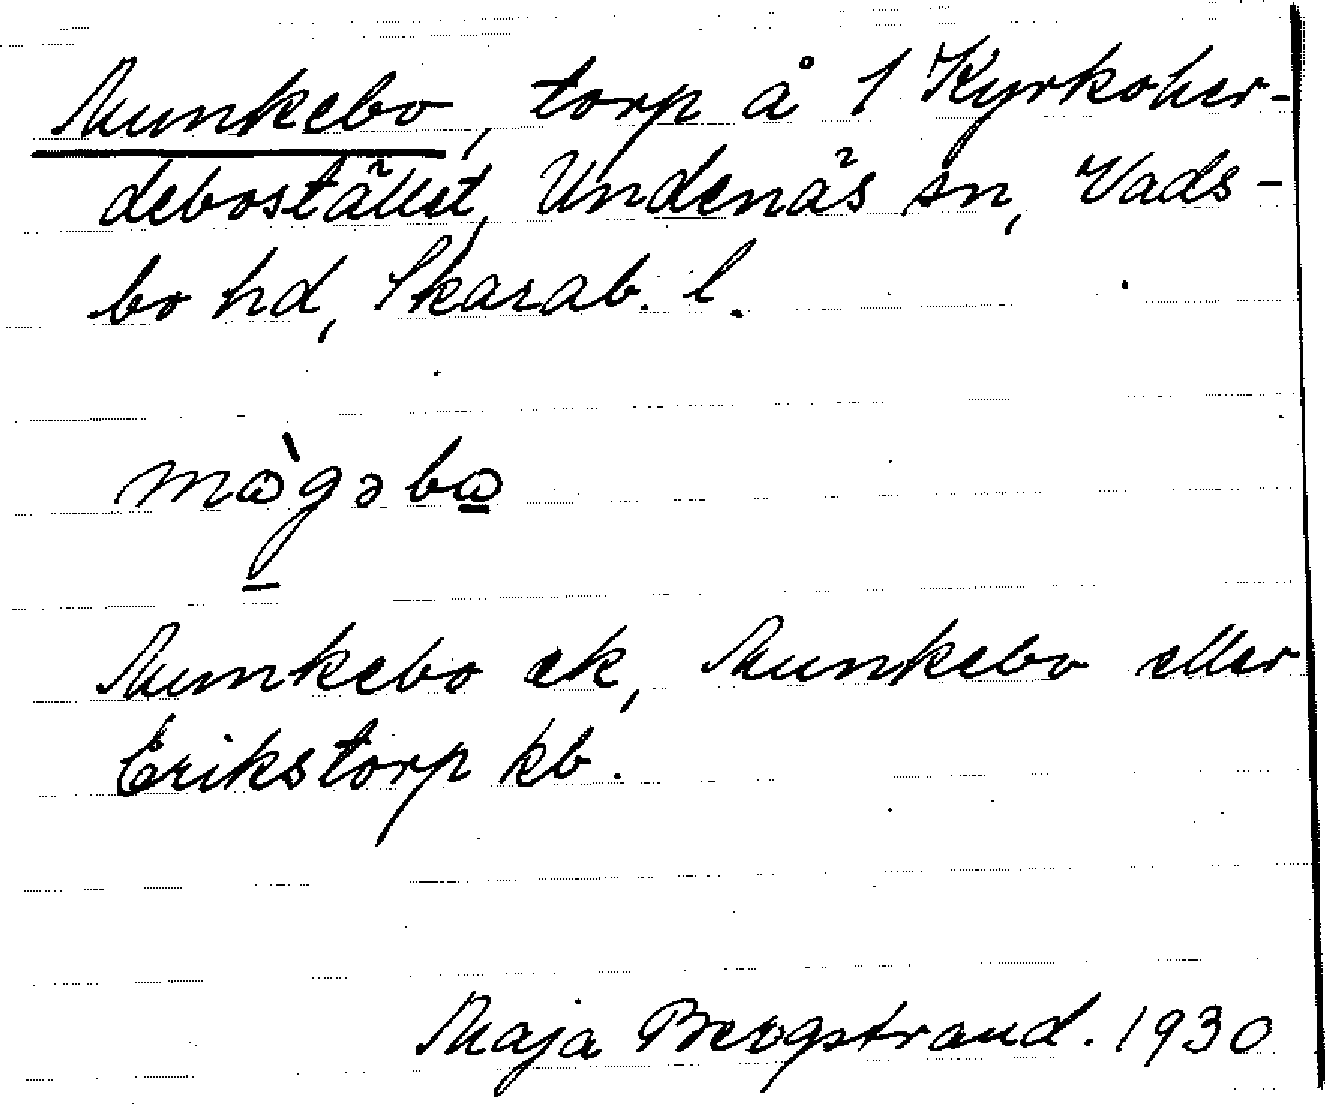 Munkebo, torp å 1 Kyrkoher-
debostället, Undenäs sn, Vads-
bo hd, Skarab. l.
Munkebo ek, Munkebo eller
Erikstorp kb.
Maja Bergstrand. 1930